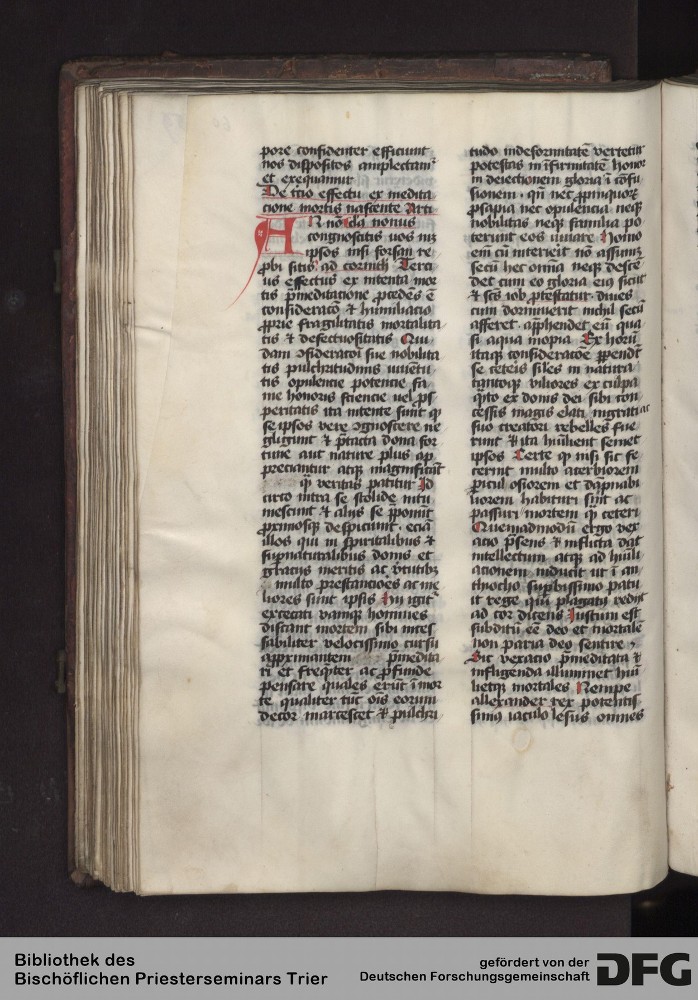 pore confidenter efficiunt
nos dispositos amplectam͛
et exequamur
De tc̄io effectu ex medita
cione mortis nascente Arti
AN nō Cla nonus
congnoscitis uos mz
ipsos nisi forsan re
ꝓbi sitis ad corinth̄ Terci
us effectus ex intenta mor
tis p̄meditacione ꝓcedēs ē
consideracō ⁊ humiliacio
ꝓprie fragilitatis mortalita
tis ⁊ defectuositatis Qui
dam ꝯsideratoī sue nobilita
tis pulchritudinis iuuētu
tis opulencie potencie fa
me honoris sciencie uel ꝓs
peritatis ita intente sunt ꝙ
se ipsos vere ꝯgnoscere ne
gligunt ⁊ p̄tacta dona for
tune aut nature plus ap
preciantur atqꝫ magnificāt
qͣ veritas patitur Id
circo intra se stolide intu
mescunt ⁊ alijs se p̄ponūt
ꝓximosqꝫ despiciunt eciā
illos qui in spiritalibus ⁊
suꝑnaturalibus donis et
gratijs meritis ac v̄tutibꝫ
multo prestancioēs ac me
liores sunt ipsis Hij igit͛
excecati vaniqꝫ homines
distant mortem sibi inces
sabiliter velocissimo cursu
apꝓximantem p̄medita
ri et freq̄ter ac ꝓfunde
pensare quales erūt ī mor
te qualiter tūc oīs eorum
decor marcescet ⁊ pulchri
tudo indeformitatē vertetur
potestas in īfirmitatē honor
in deiectionem gloria ī cōfu
sionem qn̄ nec ꝓpinquoꝝ
ꝓsapia nec opulencia neqꝫ
nobilitas neqꝫ familia po
terunt eos iuuare Homo
em̄ cū interierit nō assumz
secū hec omnia neqꝫ descē
det cum eo gloria eiꝰ sicut
⁊ sc̄s iob ꝓtestatur diues
cum dormierit nichil secū
afferet app̄hendet eū qua
si aqua inopia Ex horū
itaqꝫ consideracōe ꝑpendt̄
se ceteis siles in natura
tantoqꝫ viliores ex culpa
qͣto ex donis dei sibi con
cessis magis elati ingratiqꝫ
suo creatori rebelles fue
runt ⁊ ita hūlient semet
ipsos Certe ꝙ nisi sic fe
cerint multo acerbiorem
ꝑicul osiorem et dāpnabi
liorem habituri sūt ac
passuri mortem qͣ ceteri
Quemadmodū ergo vex
acio p̄sens ⁊ inflicta dat
intellectum atqꝫ ad hūili
acionem inducit ut ī an
thiocho suꝑbissimo patu
it rege qui plagatꝰ redijt
ad cor dicens Iustum est
subditū eē deo et mortalē
non paria deo sentire
Sic vexacio p̄meditata ⁊
infligenda illuminet hūi
lietqꝫ mortales Nempe
allexander rex potentis
simꝰ iaculo lesus omnes
Bibliothek des
Bischöflichen Priesterseminars Trier
gefördert von der
Deutschen Forschungsgemeinschaft
DFG